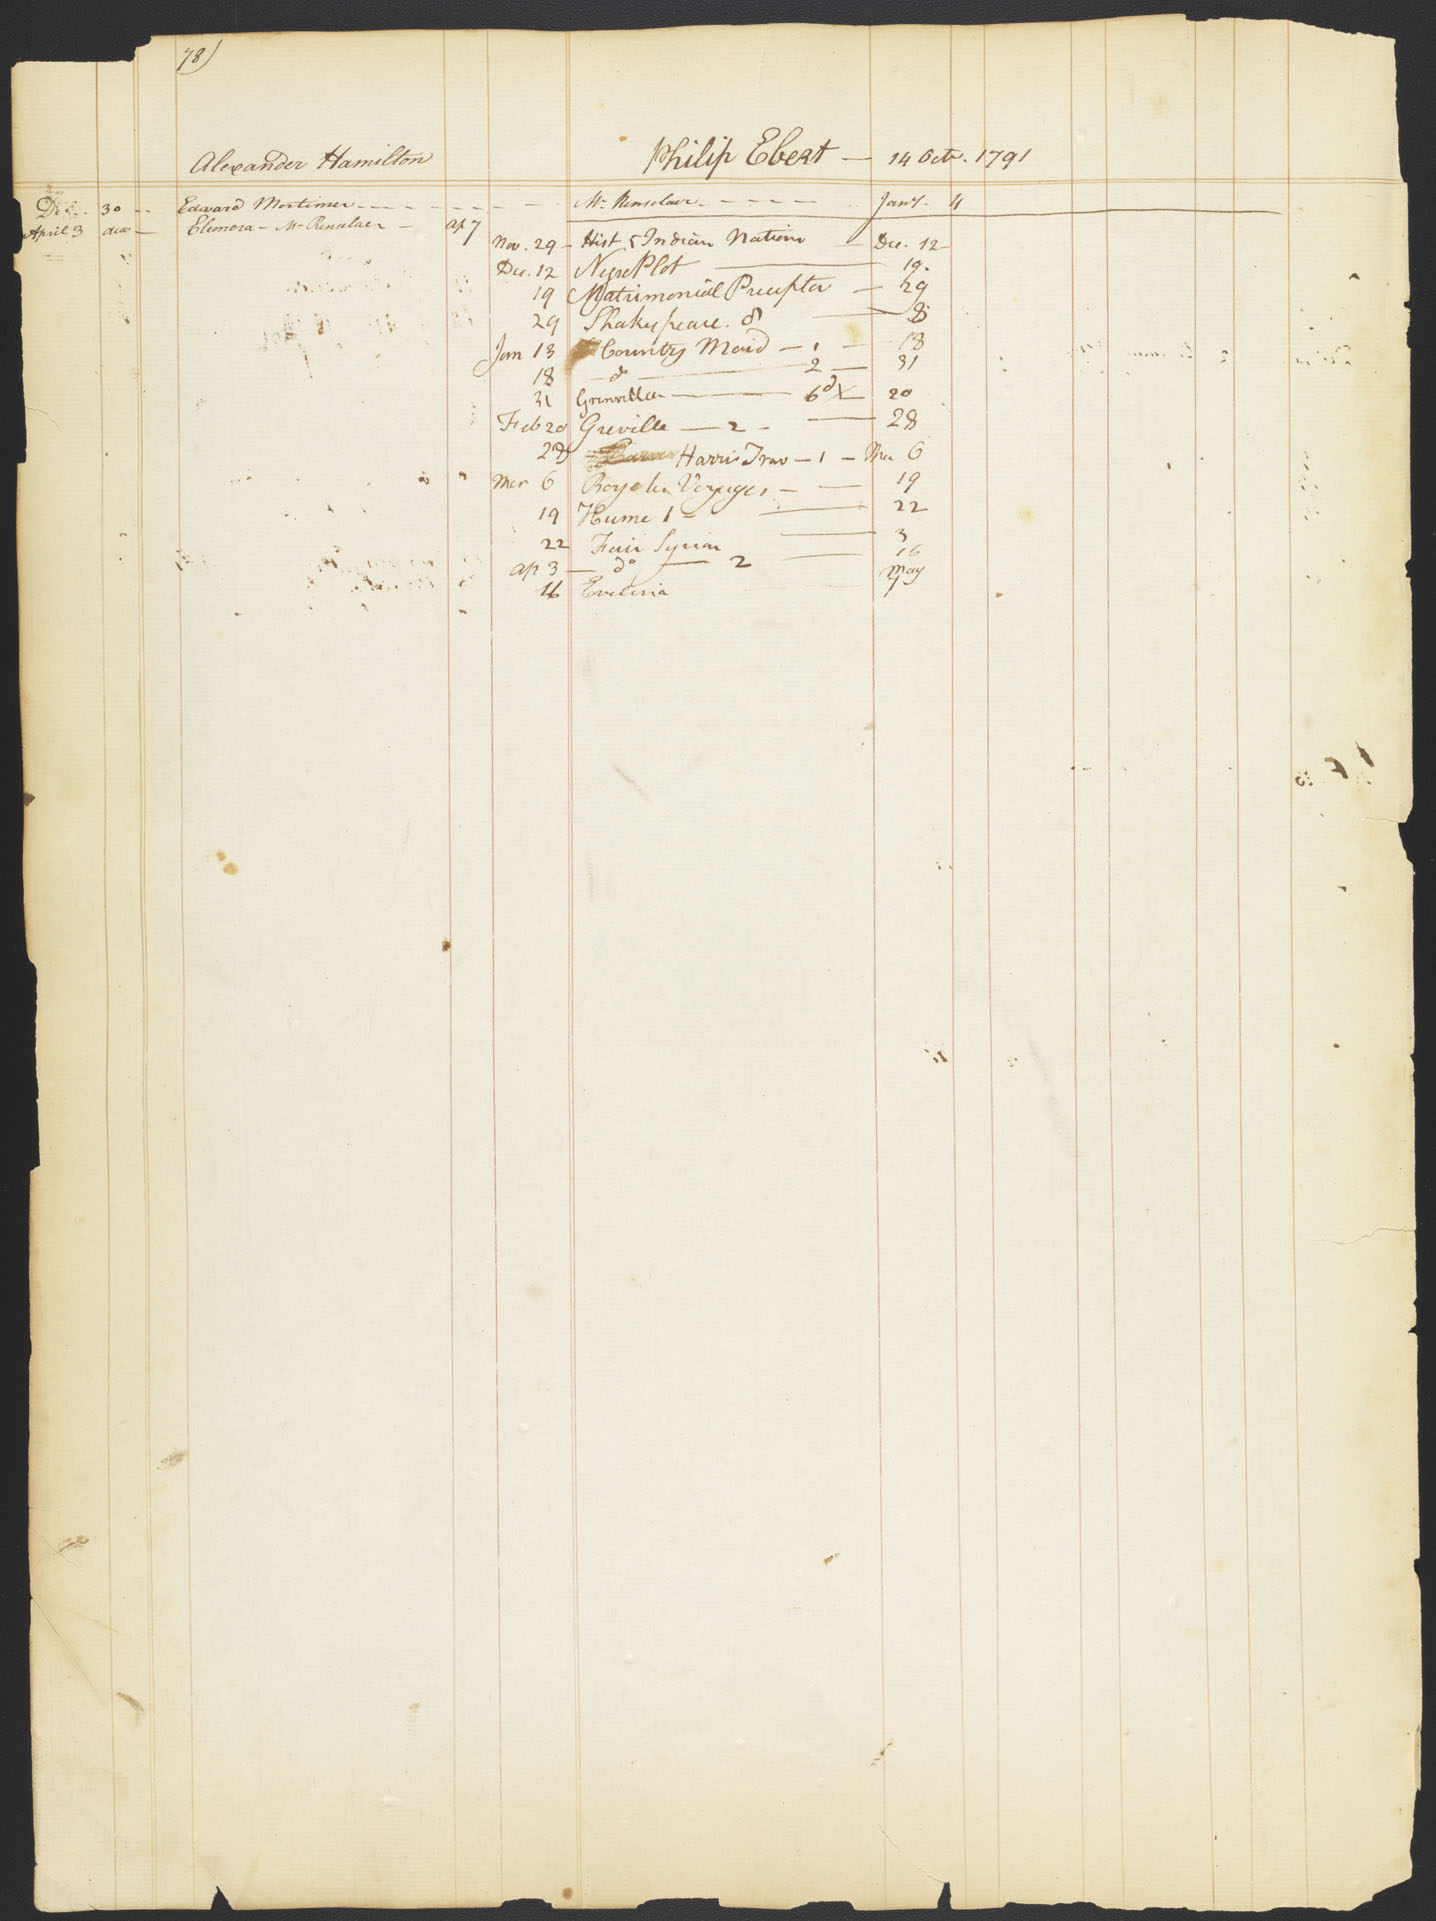 78)
Alexander Hamilton
Dec. 30 -- Edward Mortimer - - - - - - - - Mr Renselaer - - - - - Jany. 4
April 3 Eleonora - Mr Rensslaer - ap 7
Philip Ebert — 14 Octr. 1791
Nov. 29 - Hist 5 Indian Nations — Dec. 12
Dec. 12 New Plot — 19.
19 Matrimonial Preceptor — 29
29 Shakespeare. 8 — 8
Jan 13 Country Maid — 1 — 18
18 — do — 2 — 31
31 Grenville — 6d — 20
Feb 20 Greville — 2 - — 28
28 Harris Trav — 1 — Mar 6
Mar 6 Voyages — — 19
19 Hume 1 — 22
22 Fair Syrian — 3
ap 3 — do — 2 — 16
16 Evelina — May 7